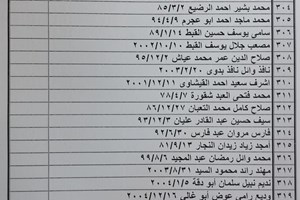 ٣٠٤ محمد بشير احمد الرضيع ٨٥/٣/٢
٣٠٥ محمد ماجد احمد ابو عجرم ٩٤/٤/٩
٣٠٦ سامي يوسف حسين القيط ٨٩/١/١٤
٣٠٧ مصعب جلال يوسف القيط ٢٠٠٢/١٠/١٠
٣٠٨ صلاح الدين عمر محمد عياش ٩٥/١٢/٢
٣٠٩ نافذ وائل نافذ بدوي ٢٠٠٣/٢/٢٠
٣١٠ اشرف سعيد احمد القيشاوي ٢٠٠١/١٢/١١
٣١١ محمد فتحي العبد شقورة ٧٨/٤/٧
٣١٢ صلاح كامل محمد التعبان ٨٦/١٢/٢٧
٣١٣ سيف حسين عبد القادر عليان ٩٣/١٢/٣
٣١٤ فارس مروان عبد فارس ٩٢/٦/٣٠
٣١٥ امجد زياد زيدان النجار ٨١/٩/١٩
٣١٦ محمد وائل رمضان عبد المجيد ٩٩/٨/٦
٣١٧ مهند رائد محمود السيد ٢٠٠٣/٣/٣١
٣١٨ نديم نبيل سلمان أبو دقة ٢٠٠٤/١/٥
٣١٩ وديع رامي عوض أبو غالي ٢٠٠٤/١٢/١٦